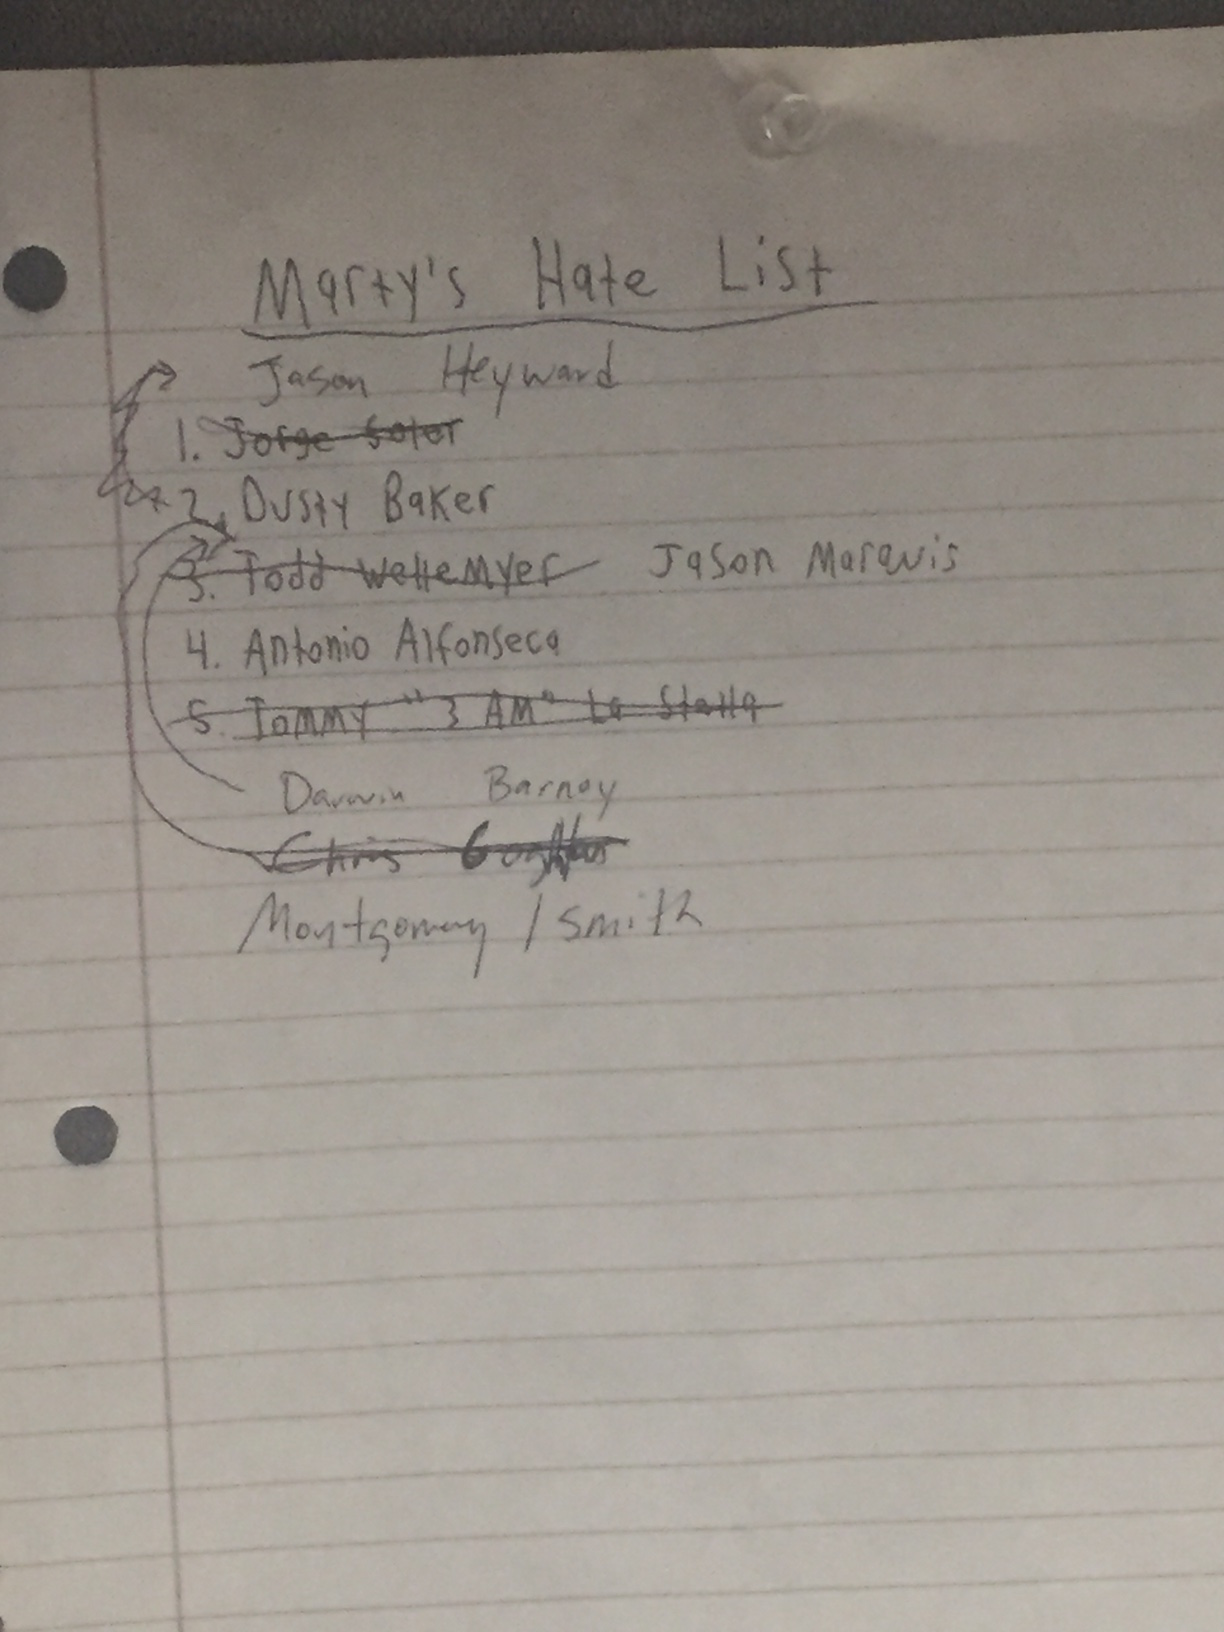 Marty's Hate List
Jason Heyward
1. Jorge Soler
2. Dusty Baker
3. Todd Wellemyer Jason Marquis
4. Antonio Alfonseca
5. Tommy "3 AM" La Stella
Darwin Barney
Chris
Montgomery / Smith